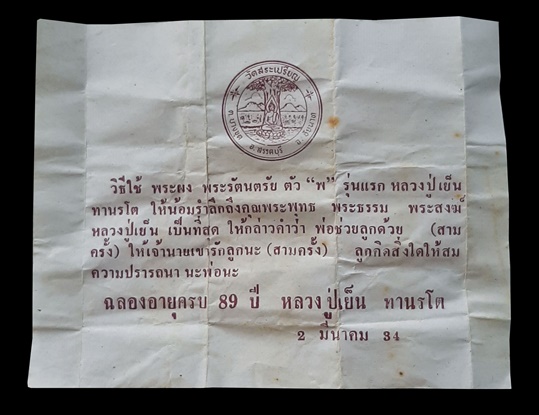 วัดสระเปรียญ
ต. บางขุด อ. สรรคบุรี จ. ชัยนาท
วิธีใช้ พระผง พระรัตนตรัย ตัว "พ" รุ่นแรก หลวงปู่เย็น
ทานรโต ให้น้อมรำลึกถึงคุณพระพุทธ พระธรรม พระสงฆ์
หลวงปู่เย็น เป็นที่สุด ให้กล่าวคำว่า พ่อช่วยลูกด้วย (สาม
ครั้ง) ให้เจ้านายเขารักลูกนะ (สามครั้ง) ลูกคิดสิ่งใดให้สม
ความปรารถนา นะพ่อนะ
ฉลองอายุครบ 89 ปี หลวงปู่เย็น ทานรโต
2 มีนาคม 34